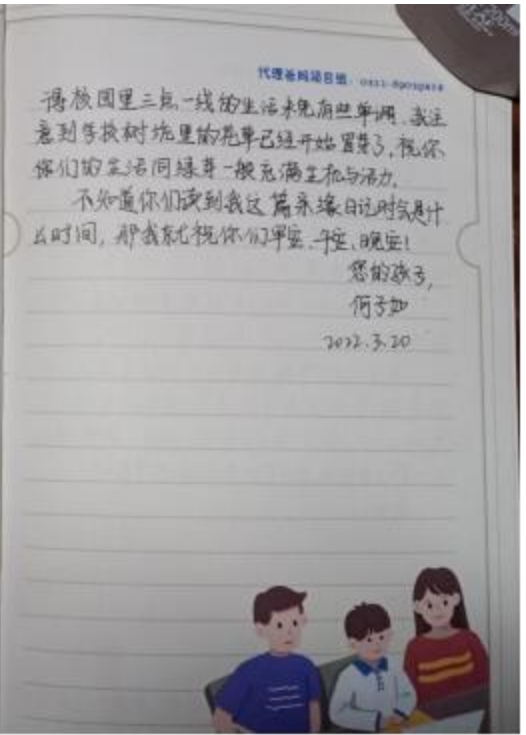 代理爸妈项目组:0551-
得校园里三点一线的生活未免有些单调。我注
意到学校树坑里的花草已经开始冒芽了,祝你
你们的生活同绿芽一般充满生机与活力。
不知道你们读到我这篇亲缘日记时会是什
么时间,那我就祝你们早安、午安、晚安!
您的孩子,
何子如
2022.3.20